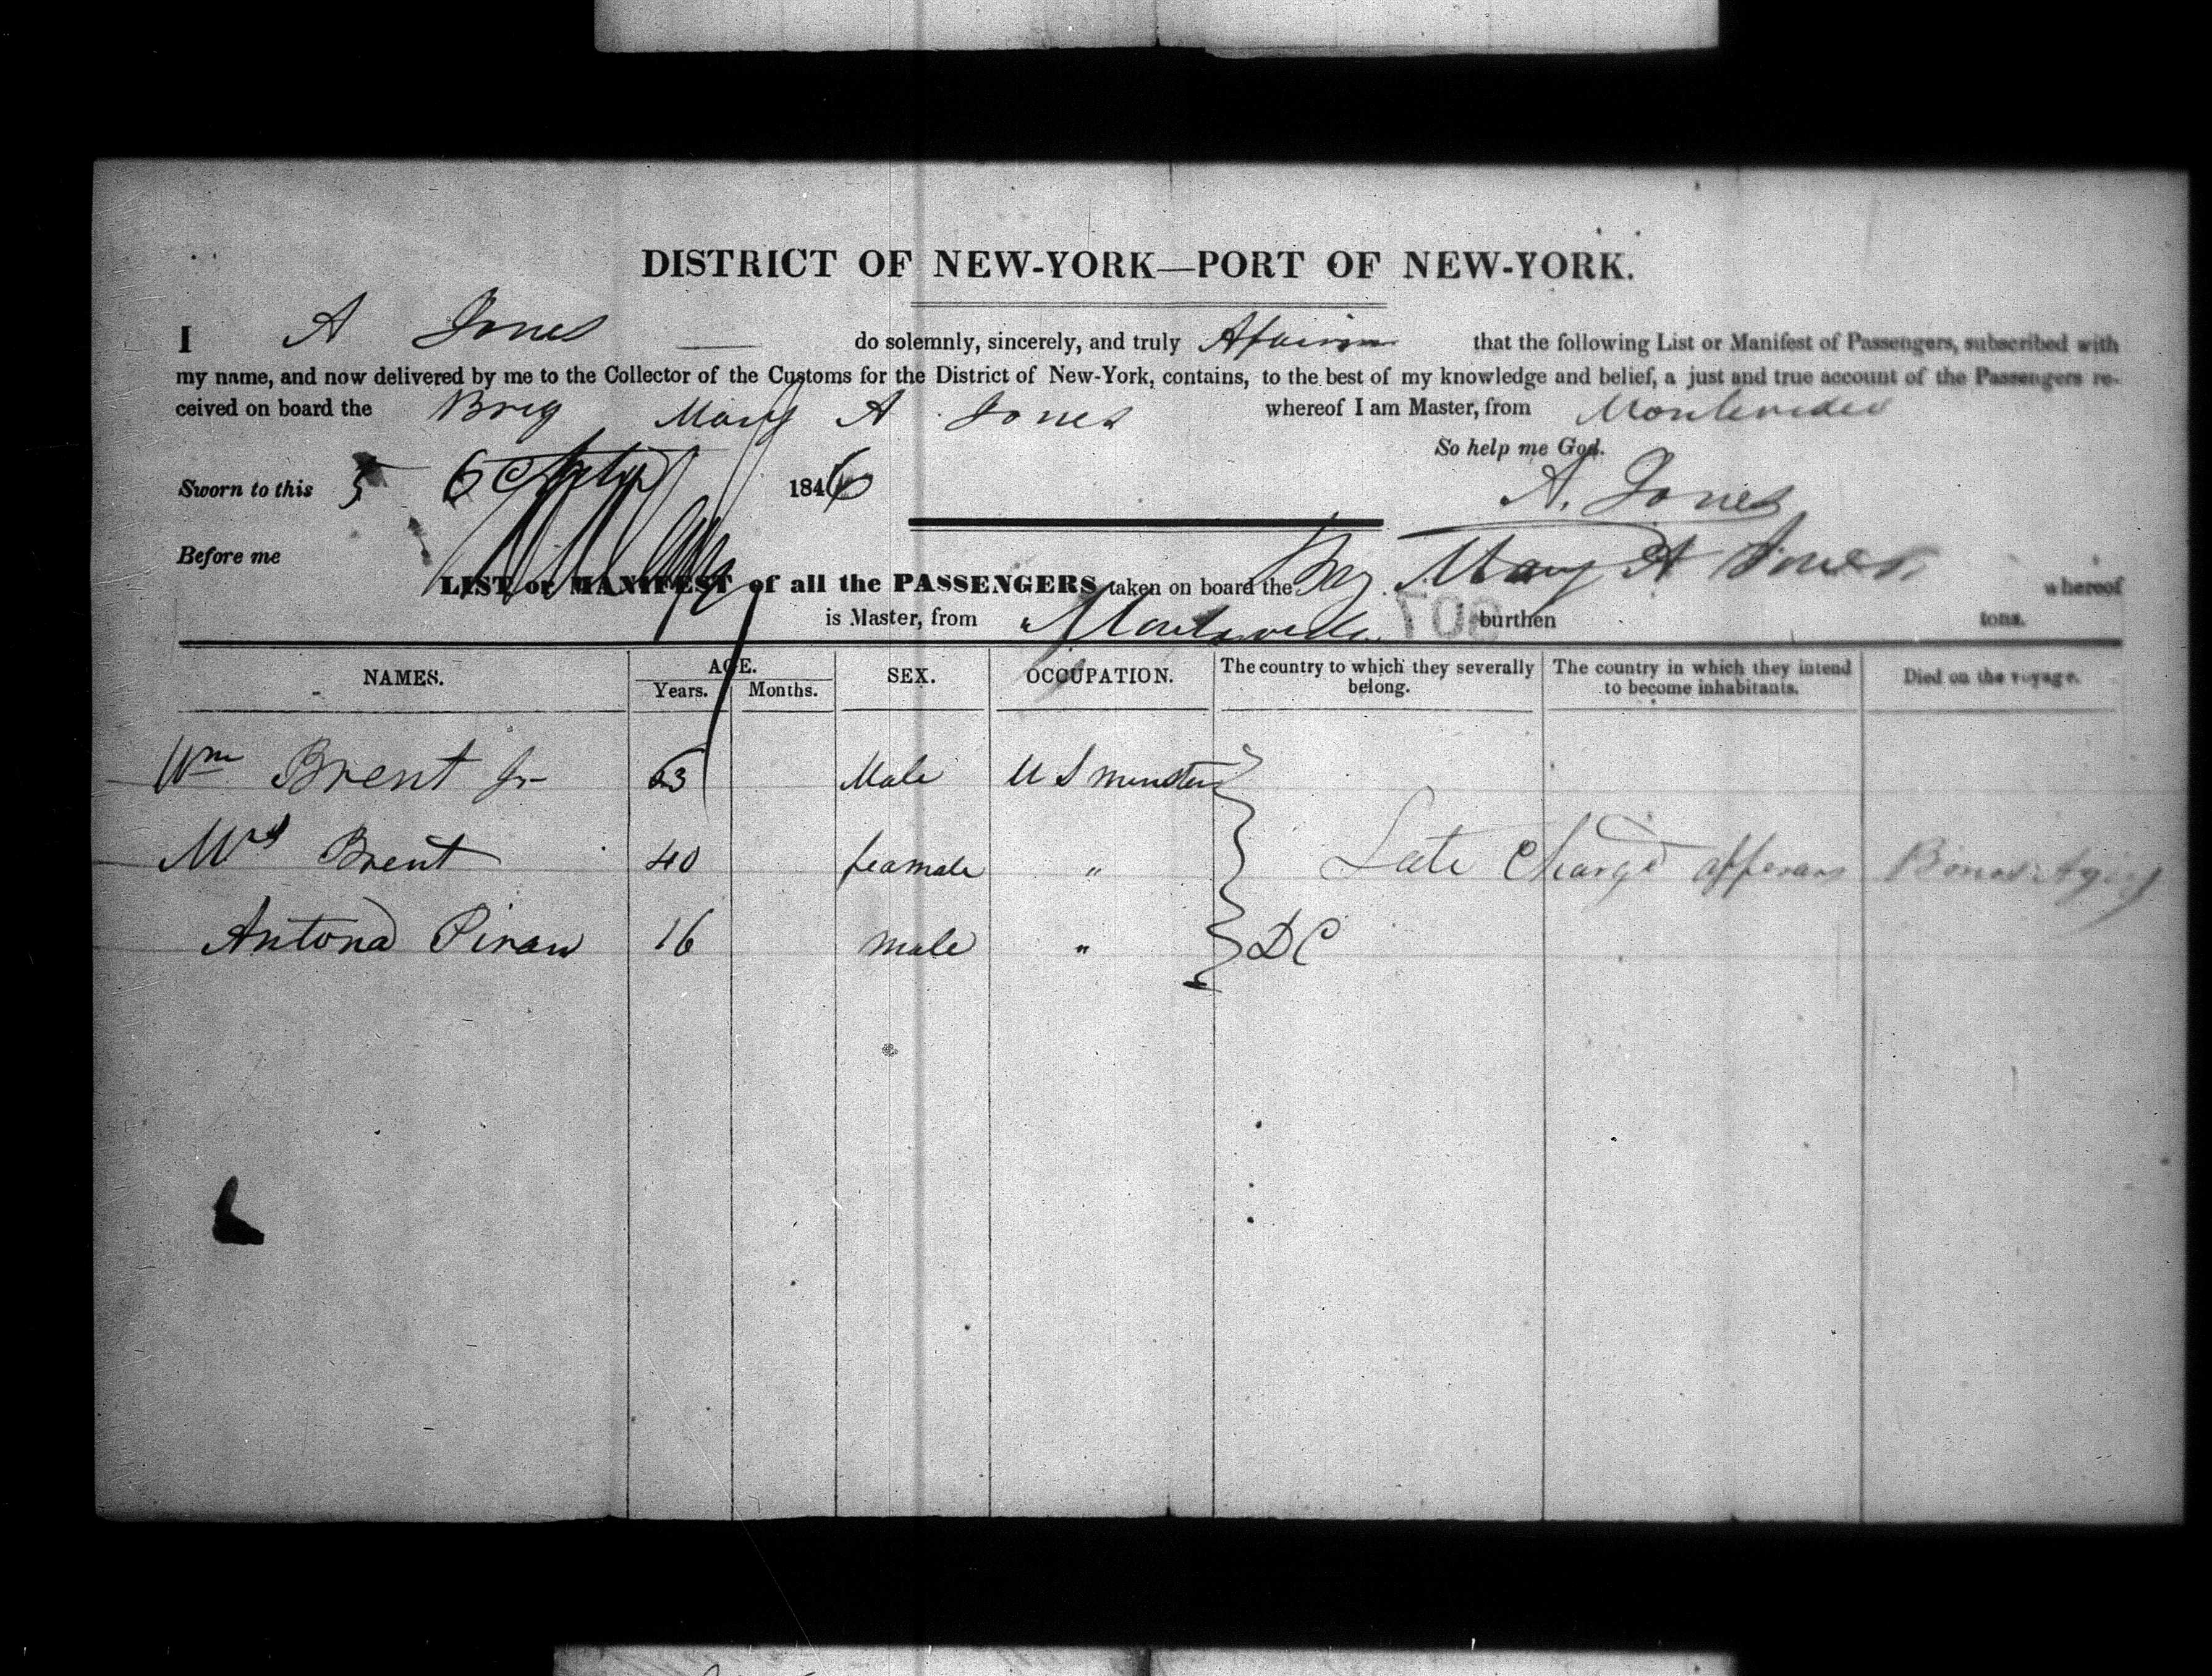 DISTRICT OF NEW-YORK—PORT OF NEW-YORK.
I A Jones do solemnly, sincerely, and truly that the following List or Manifest of Passengers, subscribed with
my name, and now delivered by me to the Collector of the Customs for the District of New-York, contains, to the best of my knowledge and belief, a just and true account of the Passengers re-
ceived on board the Brig Mary A Jones whereof I am Master, from Montevideo
So help me God.
Sworn to this 1846
A. Jones
Before me
LIST or MANIFEST of all the PASSENGERS taken on board the Brig Mary A Jones whereof
is Master, from Montevideo burthen tons.
NAMES. AGE. Years. Months. SEX. OCCUPATION. The country to which they severally belong. The country in which they intend to become inhabitants. Died on the voyage.
Wm Brent Jr Male U S minster
Mrs Brent 40 feamale " Late Charge
Antona 16 male " DC